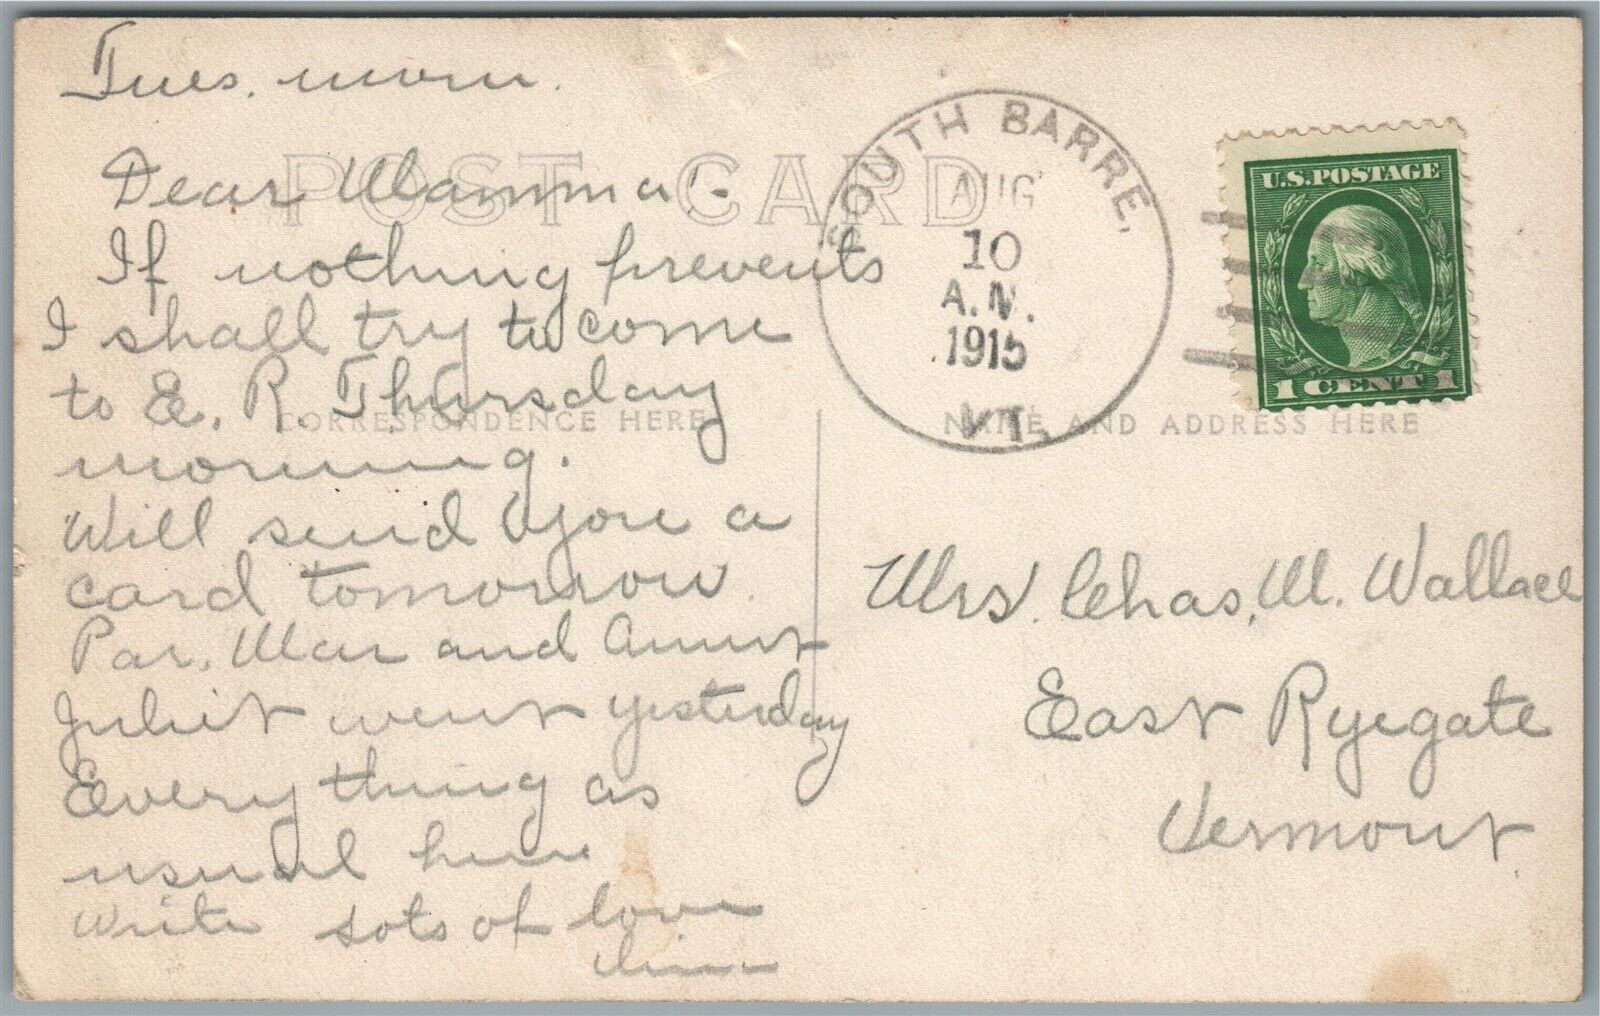 Tues. morn.
Dear Mamma:-
If nothing prevents
I shall try to come
to E. R. Thursday
morning.
Will send you a
card tomorrow.
Par, Mar and Aunt
Juliet went yesterday
Everything as
usual here
Write sots of love
POST CARD
CORRESPONDENCE HERE
NAME AND ADDRESS HERE
SOUTH BARRE,
AUG
10
A.M.
1915
VT.
U.S. POSTAGE
1 CENT 1
Mrs. Chas. M. Wallace
East Ryegate
Vermont